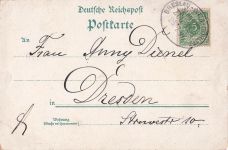 Deutsche Reichspost
Postkarte
An
Frau Anny Dienel
in
Dresden
Wohnung
(Straße und Hausnummer)
Struvestr 10.